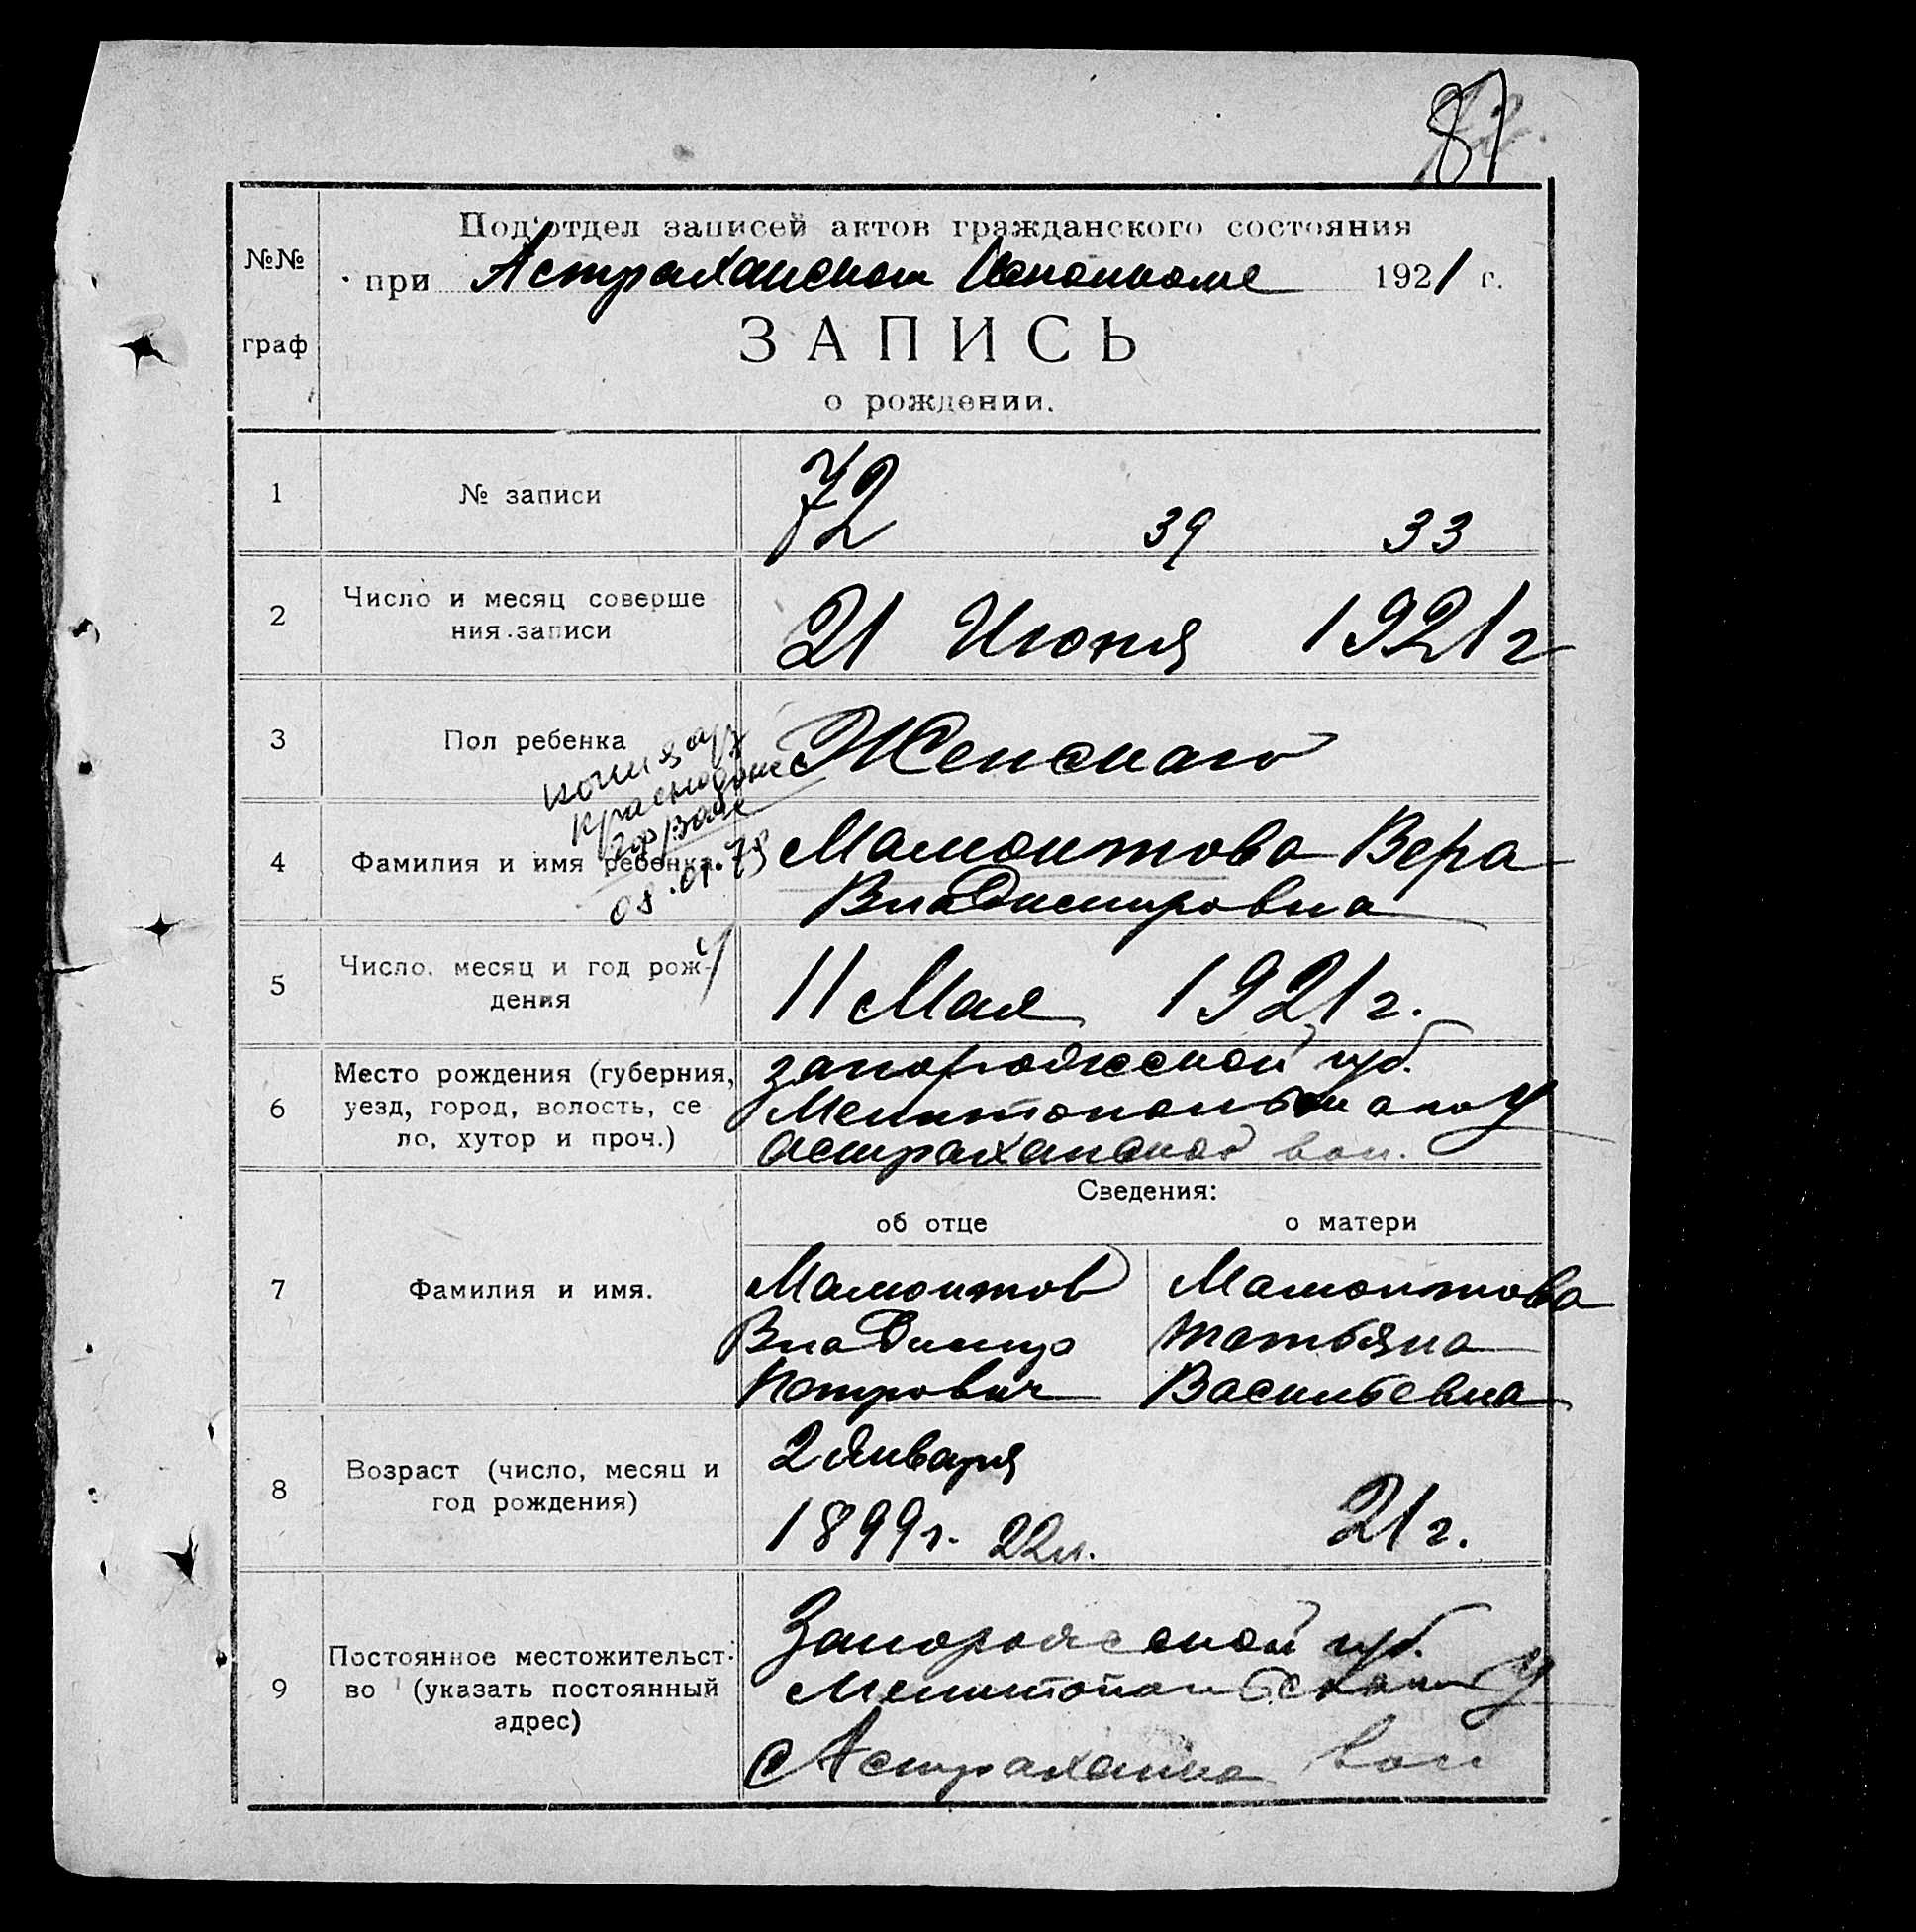 81
Под'отдел записей актов гражданского состояния
№№
при Астраханском Исполкоме 1921 г.
граф
ЗАПИСЬ
о рождении.
1 № записи 72 39 33
2 Число и месяц соверше
ния записи
21 Июня 1921 г
3 Пол ребенка Женскаго
копия
Краснодоне
08.01.79
4 Фамилия и имя ребенка Мамонтова Вера
Владимировна
5 Число, месяц и год рож-
дения
11 Мая 1921 г.
6 Место рождения (губерния,
уезд, город, волость, се
ло, хутор и проч.)
Запорожской губ.
Мелитопольскаго У
Астраханской вол.
Сведения:
об отце о матери
7 Фамилия и имя.
Мамонтов Мамонтова
Владимир Татьяна
Петрович Васильевна
8 Возраст (число, месяц и
год рождения)
2 Января
1899 г. 22 л. 21 г.
9 Постоянное местожительст-
во (указать постоянный
адрес)
Запорожской губ.
Мелитопольскаго У
с Астраханка вол